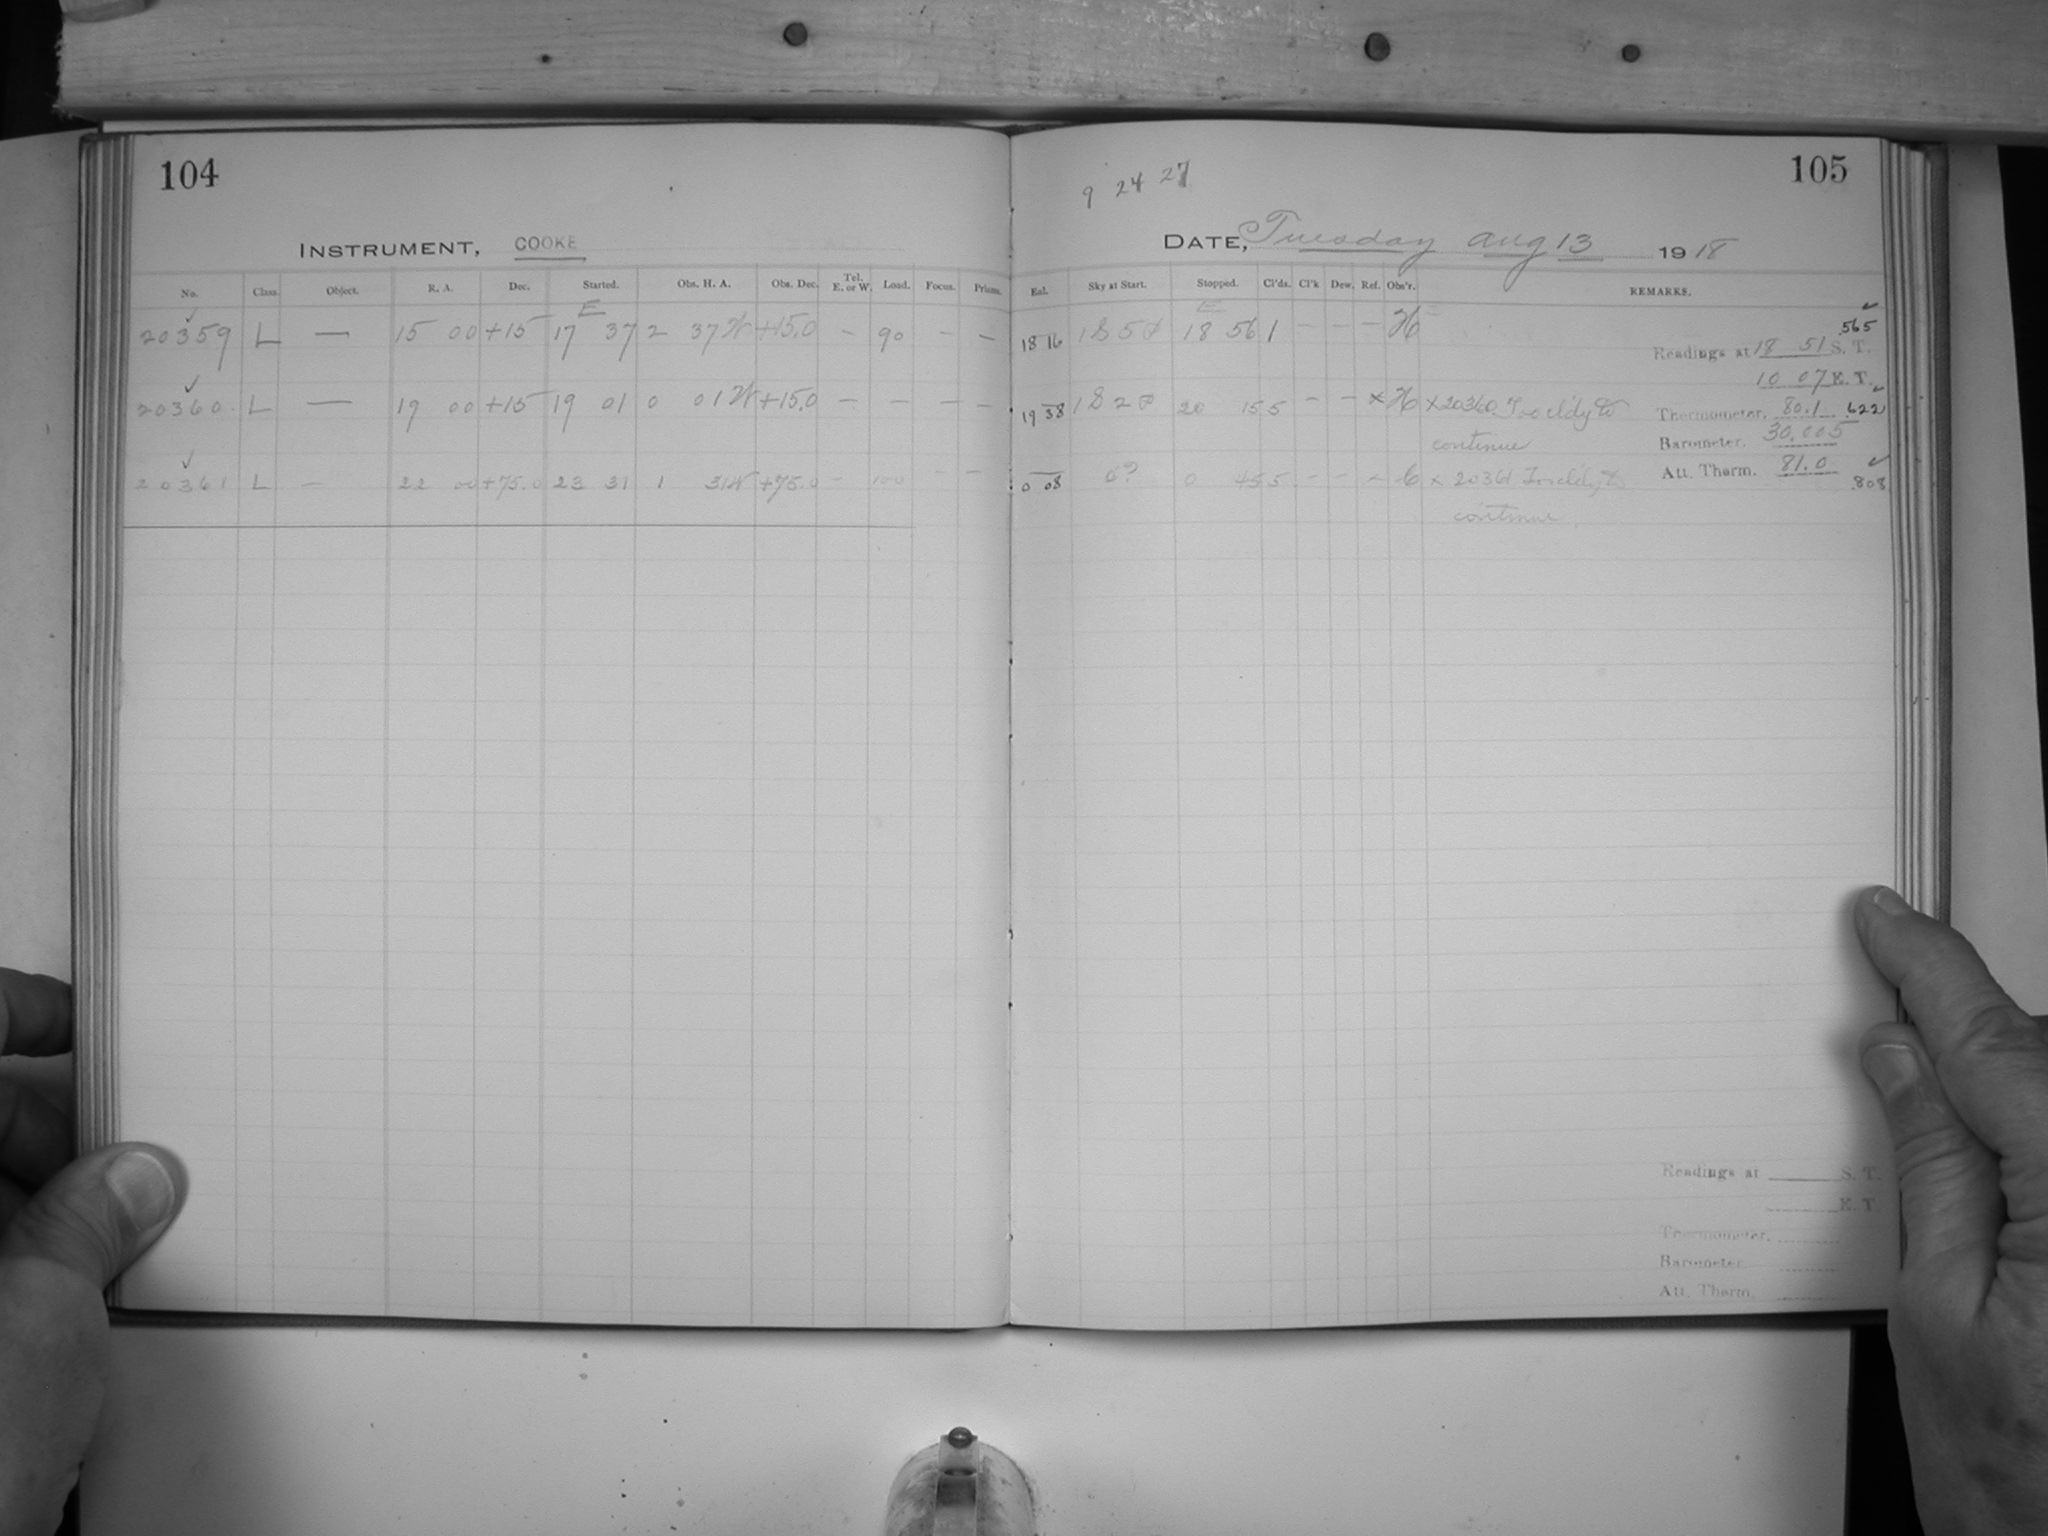 104
INSTRUMENT, COOKE
No. Class. Object. R. A. Dec. Started. Obs. H. A. Obs. Dec. Tel. E. or W. Load. Focus. Prisms.
E
20359 L — 15 00 +15 17 37 2 37 W +15.0 — 90 — —
20360 L — 19 00 +15 19 01 0 01 W +15.0 — — — —
20361 L — 22 00 +75.0 23 31 1 31 W +75.0 — 100 — —
9 24 27
105
DATE, Tuesday Aug 13 1918
Sky at Start. Stopped. Cl'ds. Cl'k Dew. Ref. Obs'r. REMARKS.
E
18 16 18 56 1 — — — H
.565
Readings at 18 51 S. T.
10 07 E. T.
19 38 20 15 5 — — × H × 20360 Too cl'dy to
continue
Thermometer, 80.1 .622
Barometer. 30.005
Att. Therm. 81.0
0 08 0 45 5 — — × 20361 Too cldy to
continue
.808
Readings at S. T.
E. T.
Thermometer.
Barometer
Att. Therm.